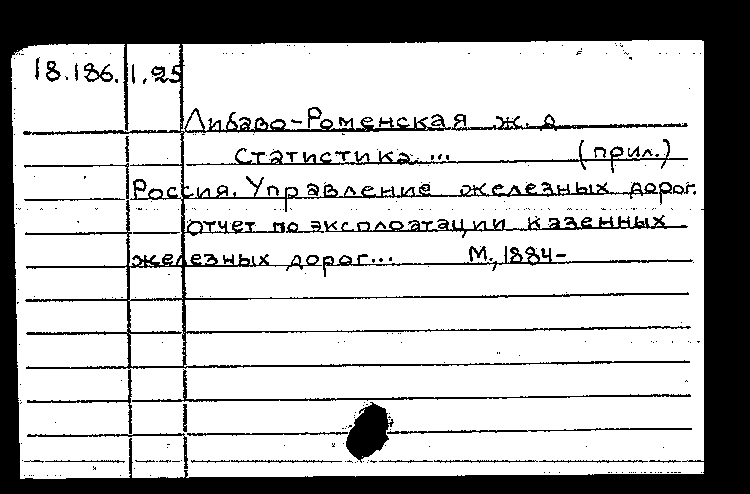 18.186.1.25
Либаво-Роменская ж. д
Статистика... (прил.)
Россия. Управление железных дорог.
Отчет по эксплоатации казенных
железных дорог... М., 1884-